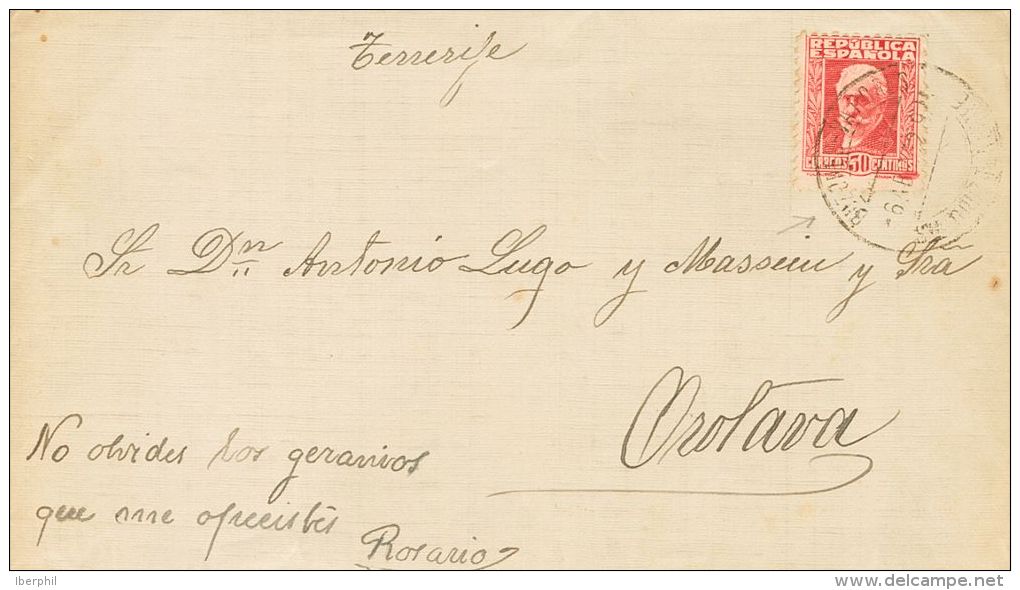 Tenerife
REPÚBLICA
ESPAÑOLA
50 CENTIMOS
Sr Dn Antonio Lugo y Massieu y Sra
Orotava
No olvides los geranios
que me ofrecistes
Rosario
Iberphil
delcampe.net